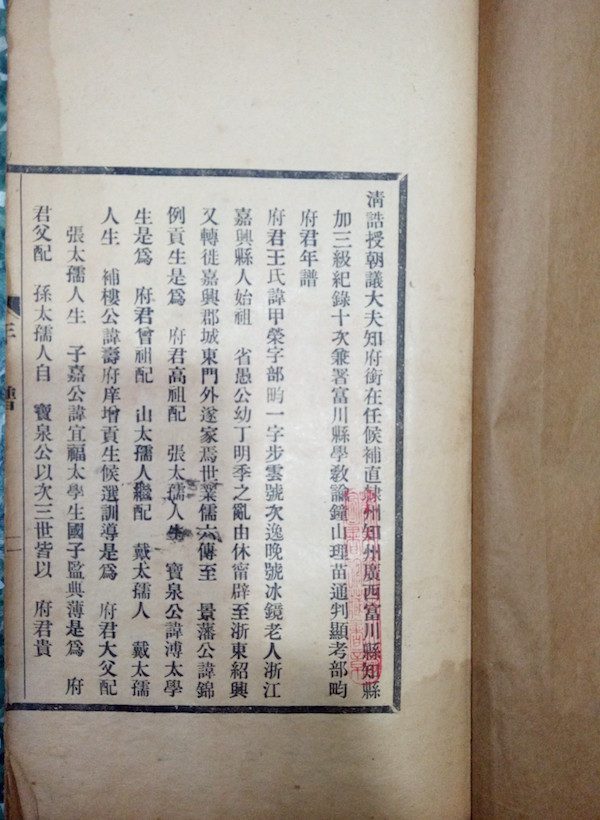 清誥授朝議大夫知府銜在任候補直隸州知州廣西富川縣知縣
加三級紀錄十次兼署富川縣學教諭鐘山理苗通判顯考部畇
府君年譜
府君王氏諱甲榮字部畇一字步雲號次逸晚號冰鏡老人浙江
嘉興縣人始祖 省愚公幼丁明季之亂由休甯辟至浙東紹興
又轉徙嘉興郡城東門外遂家焉世業儒六傳至 景藩公諱錦
例貢生是爲 府君高祖配 張太孺人生 寶泉公諱溥太學
生是爲 府君曾祖配 山太孺人繼配 戴太孺人 戴太孺
人生 補樓公諱壽府庠增貢生候選訓導是爲 府君大父配
張太孺人生 子嘉公諱宜福太學生國子監典薄是爲 府
君父配 孫太孺人自 寶泉公以次三世皆以 府君貴